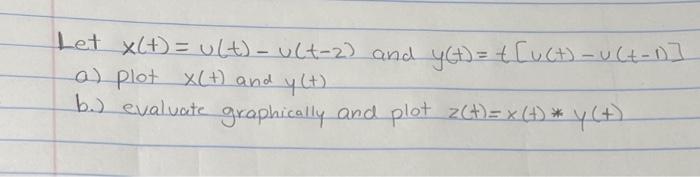 Let x(t) = u(t) - u(t-2) and y(t) = t [u(t) - u(t-1)]
a) plot x(t) and y(t)
b.) evaluate graphically and plot z(t) = x(t) * y(t)